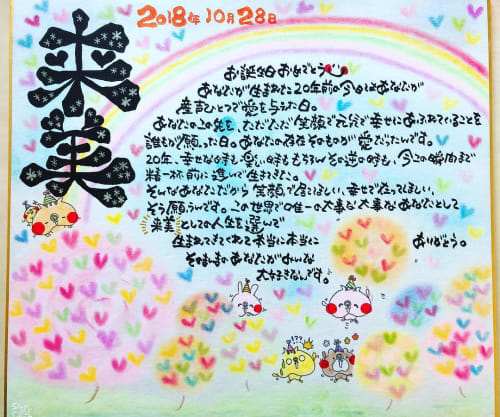 来美
2018年10月28日
お誕生日おめでとう
あなたが生まれた20年前の今日はあなたが
産声ひとつで愛を与えた日。
あなたのこの先を、ただただ笑顔で元気で幸せにあふれていることを
誰もが願った日。あなたの存在そのものが愛だったんです。
20年、幸せな時も楽しい時ももちろんその逆の時も、今この瞬間まで
精一杯前に進んで生きてきた。
そんなあなただから笑顔で包てほしい、幸せで在ってほしい、
そう願うんです。この世界で唯一の大事な大事なあなたとして
来美としての人生を選んで
生まれてきてくれて本当に本当に ありがとう。
そのまんまのあなたがみんな
大好きなんです。
!??